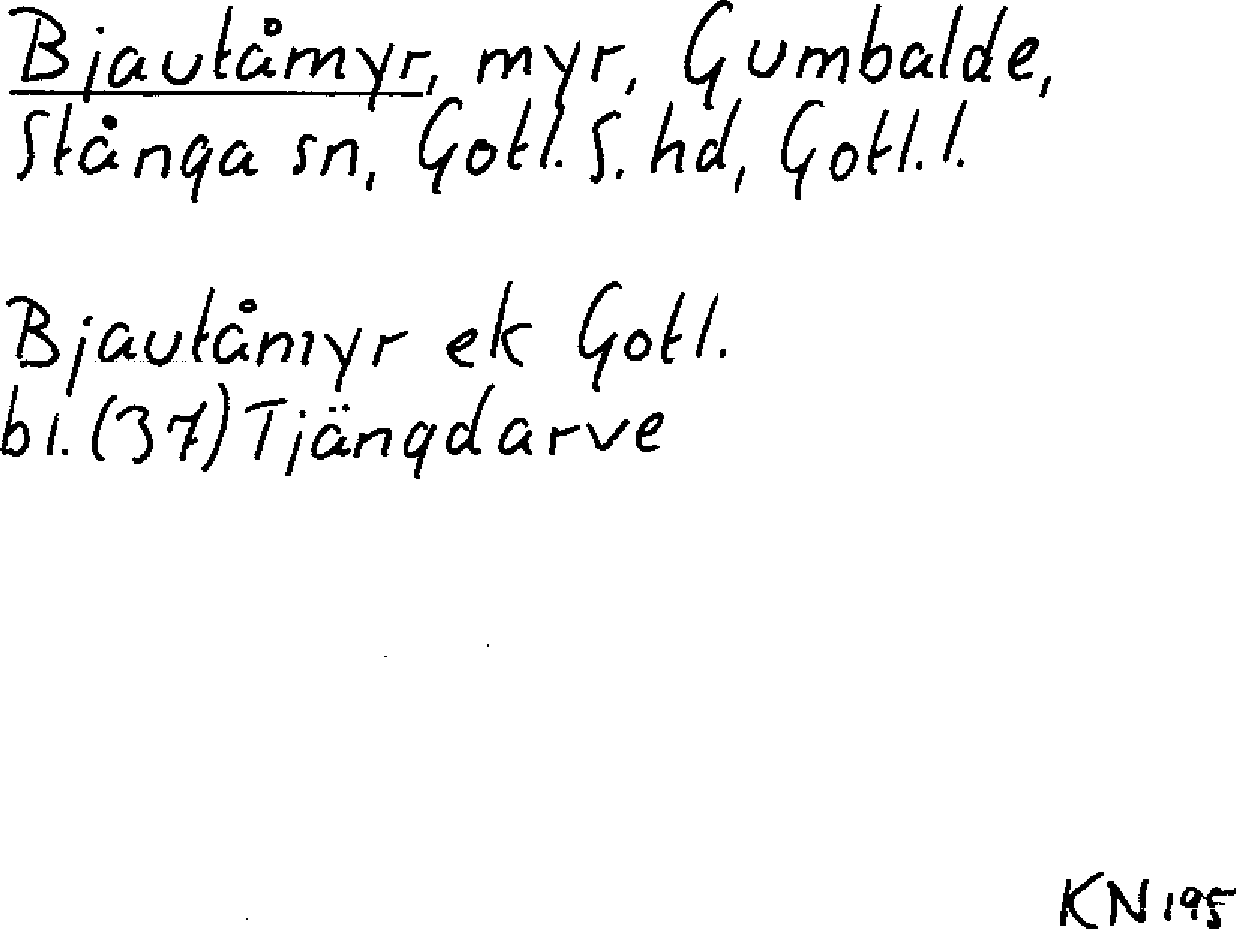 Bjautåmyr, myr, Gumbalde,
Stånga sn, Gotl. S. hd, Gotl. l.
Bjautåmyr ek Gotl.
bl. (37) Tjängdarve
KN 195